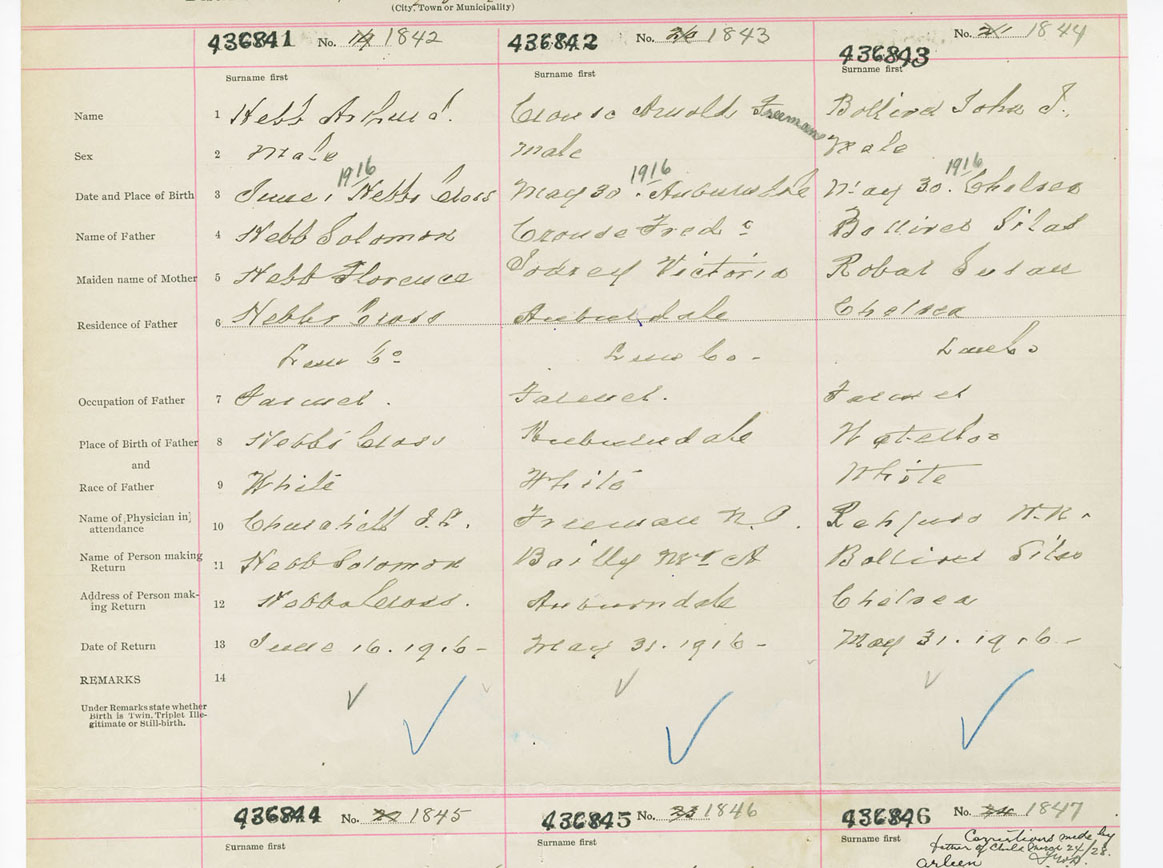 (City, Town or Municipality)
436841 No. 14 1842 436842 No. 20 1843 436843 No. 21 1844
Surname first Surname first Surname first
Name 1 Hebb Arthur J. Crouse Arnold Freeman Bolliver John J.
Sex 2 Male Male Male
1916 1916 1916
Date and Place of Birth 3 June 1 Hebbs Cross May 30. Auburndale May 30. Chelsea
Name of Father 4 Hebb Solomon Crouse Fred c Bolliver Silas
Maiden name of Mother 5 Hebb Florence Victoria Robar Susan
Residence of Father 6 Hebbs Cross Auburndale Chelsea
Lun Co Lun Co - Lun Co
Occupation of Father 7 Farmer. Farmer. Farmer
Place of Birth of Father 8 Hebbs Cross Auburndale Waterloo
and
Race of Father 9 White White White
Name of Physician in attendance 10 Churchill Freeman N.P. W.K.
Name of Person making Return 11 Hebb Solomon Bailly Mrs A Bolliver Silas
Address of Person making Return 12 Hebbs Cross. Auburndale Chelsea
Date of Return 13 June 16. 1916 - May 31. 1916 - May 31. 1916 -
REMARKS 14
Under Remarks state whether
Birth is Twin, Triplet Ille-
gitimate or Still-birth.
436844 No. 22 1845 436845 No. 23 1846 436846 No. 24 1847
Surname first Surname first Surname first
Corrections made by
father of Child
arleen